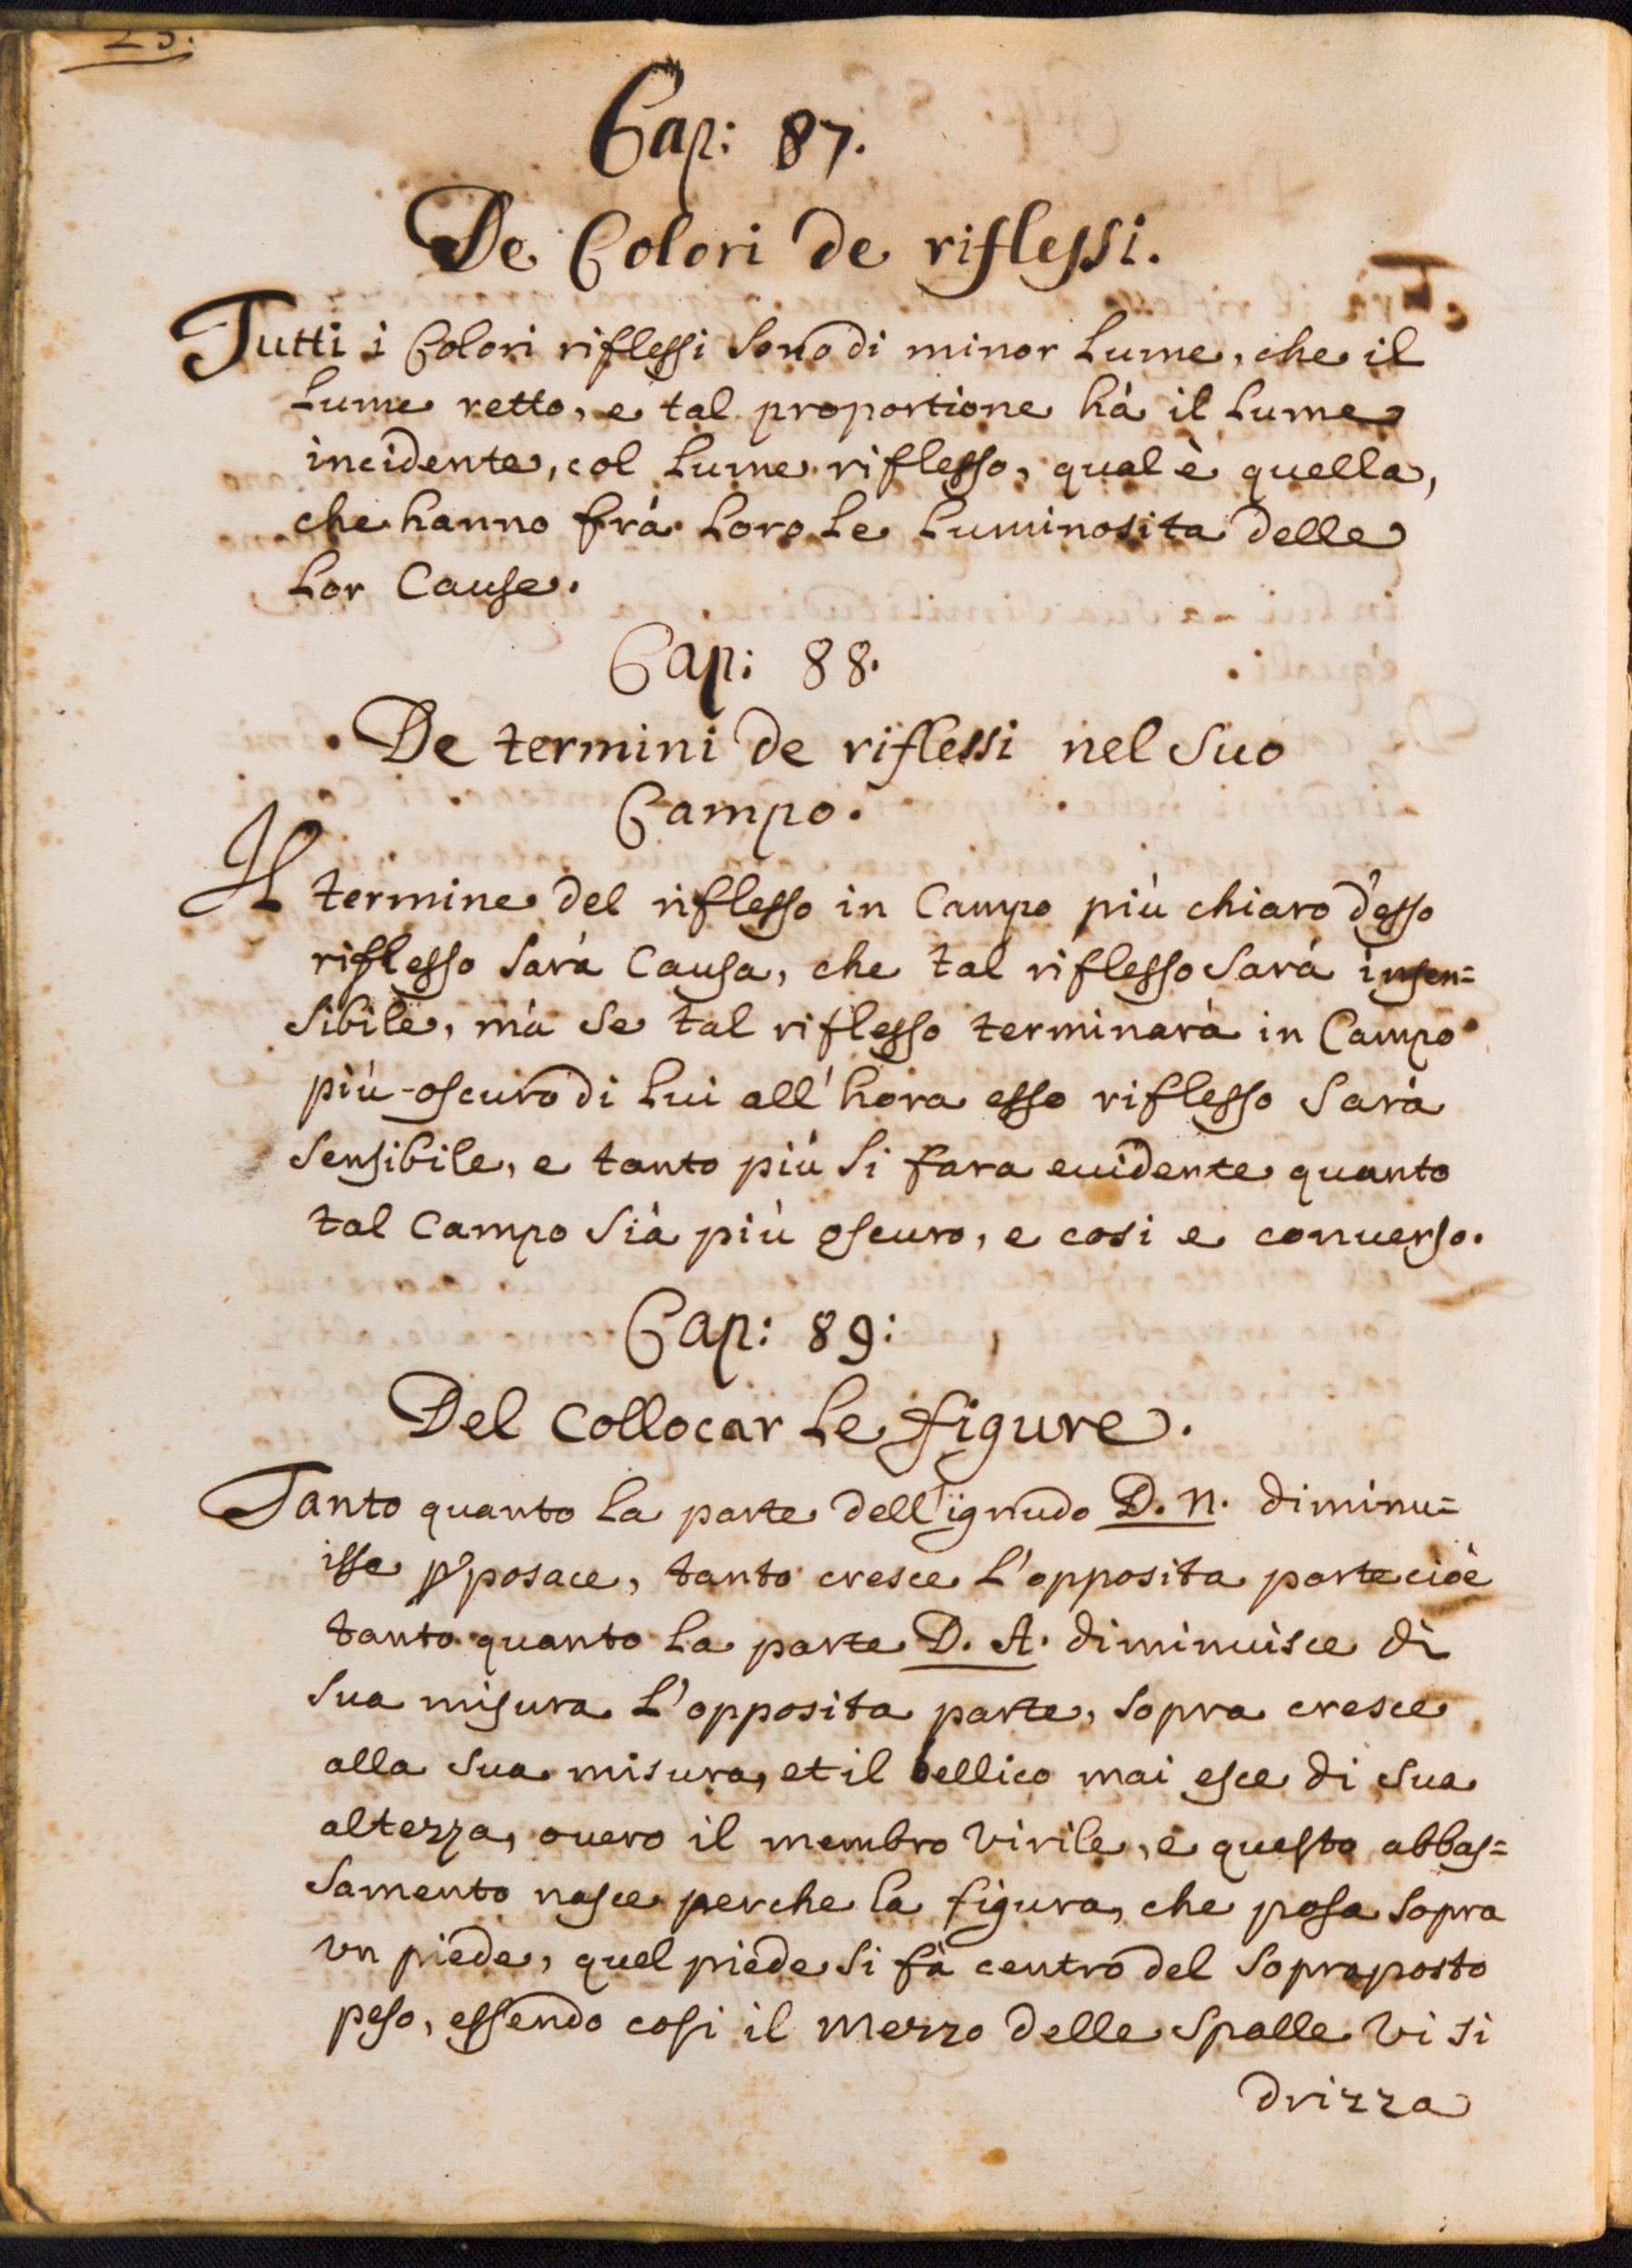 Cap: 87.
De Colori de riflessi.
Tutti i Colori riflessi sono di minor lume, che il
lume retto, e tal proportione hà il lume
incidente, col lume riflesso, qual è quella,
che hanno frà loro le luminosita delle
lor Cause.
Cap: 88.
De termini de riflessi nel suo
Campo.
Il termine del riflesso in Campo più chiaro d'esso
riflesso sarà Causa, che tal riflesso sarà insen=
sibile, mà se tal riflesso terminarà in Campo
più oscuro di lui all'hora esso riflesso sarà
sensibile, e tanto più si fara euidente quanto
tal Campo sià più oscuro, e cosi e conuerso.
Cap: 89:
Del collocar le figure.
Tanto quanto la parte dell'ignudo D. N. diminu=
isse posace, tanto cresce l'opposita parte cioè
tanto quanto la parte D. A. diminuisce di
sua misura l'opposita parte, sopra cresce
alla sua misura, et il bellico mai esce di sua
altezza, ouero il membro virile, e questo abbas=
samento nasce perche la figura, che posa sopra
vn piede, quel piede si fà centro del sopraposto
peso, essendo cosi il mezzo delle spalle vi si
drizza